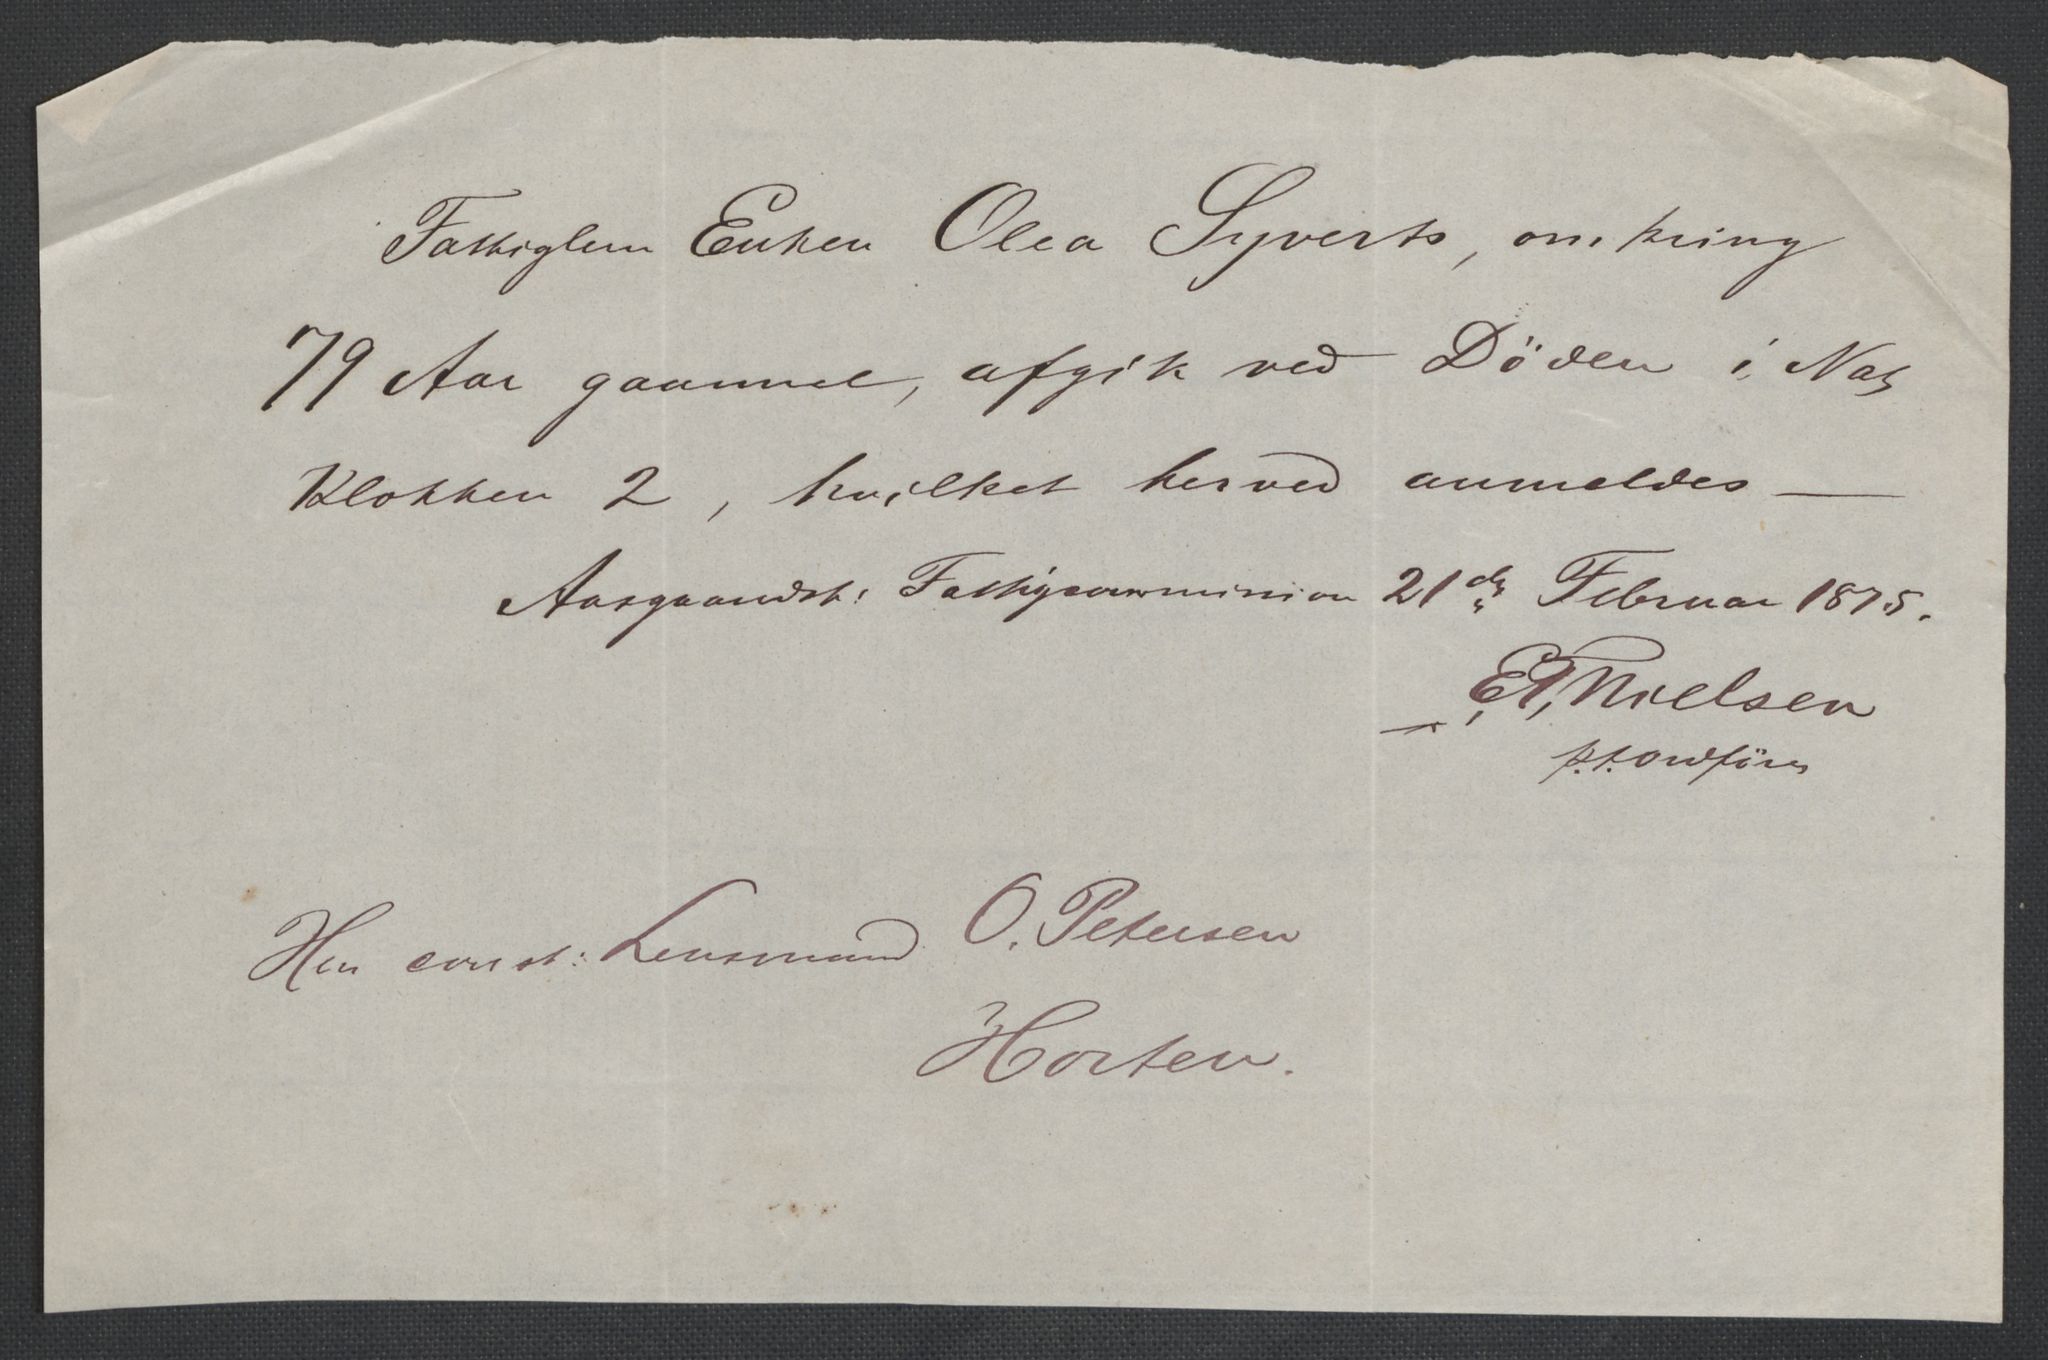 Fattiglem Enken Olea Syverts, omkring
79 Aar gaammel, afgik ved Döden i Nat
Klokken 2, hvilket herved anmeldes —
Aasgaardst: Fattigcommission 21de Februar 1875.
E. A. Nielsen
p.t. ordförer
Herr const: Lensmand O. Petersen
Horten.